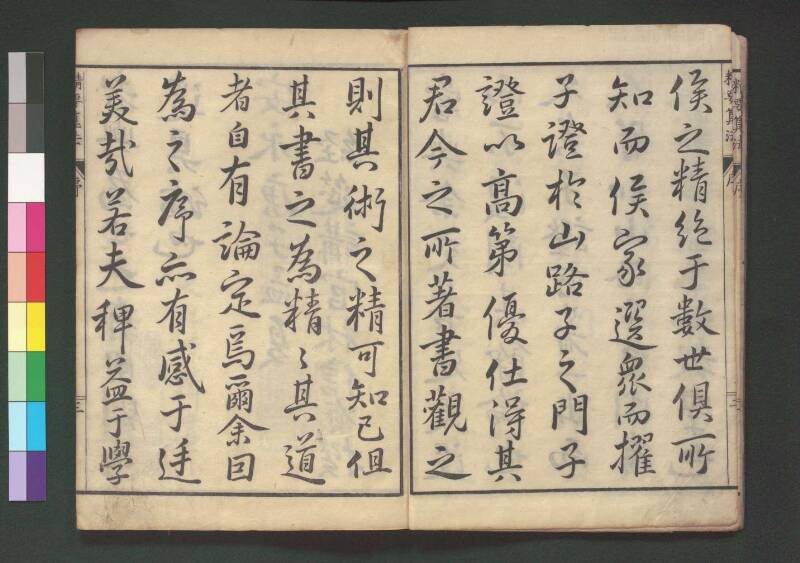 侯之精絶于數世俱所
知而侯家選衆而擢
子證於山路子之門子
證以高第優仕得其
君今之所著書觀之
則其術之精可知已但
其書之為精〻其道
者自有論定焉爾余曰
為之序亦有感于
美哉若夫稗益于學
精要算法
序
三